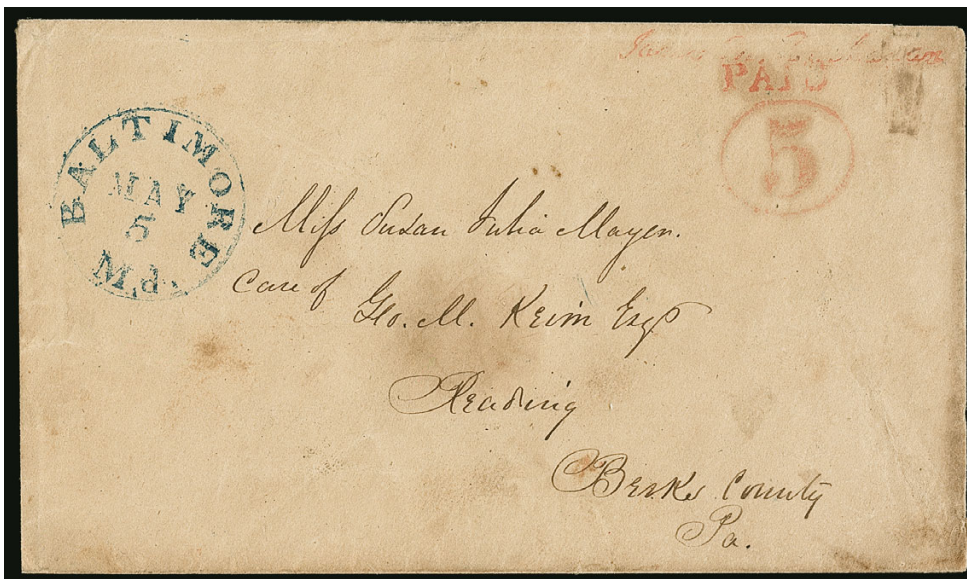 PAID
5
BALTIMORE Md.
MAY
5
Miss Susan Julia Mayer.
Care of
Geo. M. Keim Esq
Reading
Berks County
Pa.